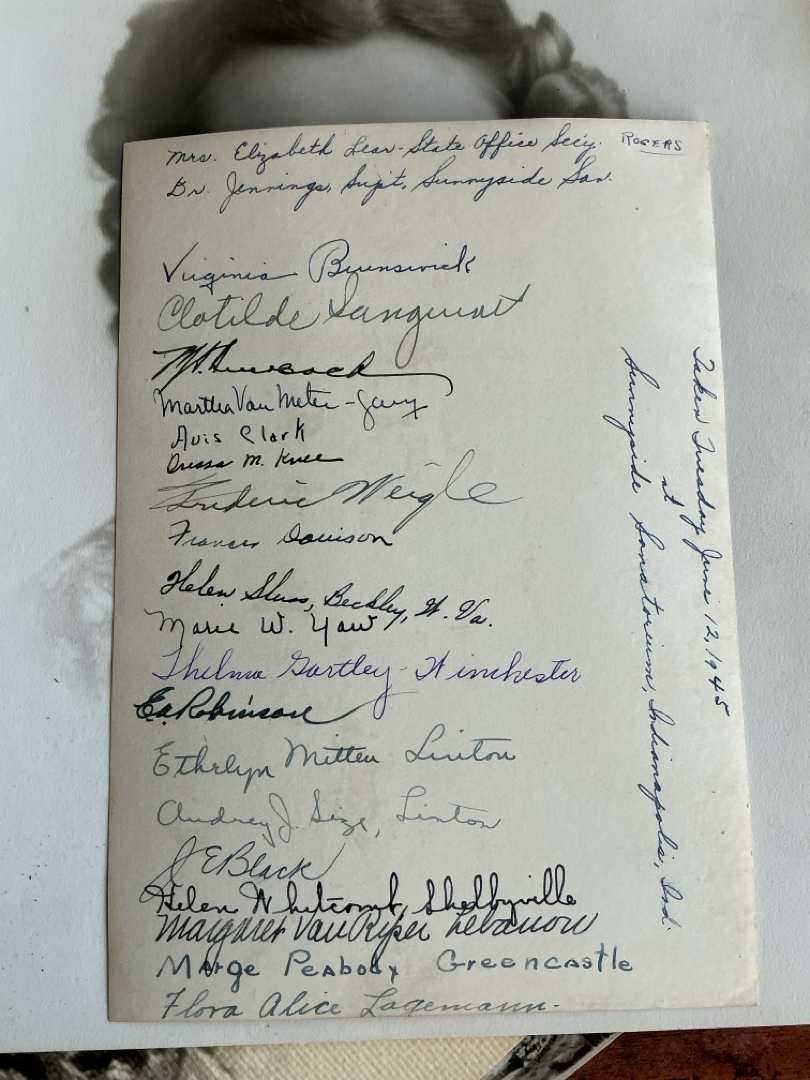 Mrs. Elizabeth Lear - State Office Secy.
ROGERS
Dr. Jennings, Supt, Sunnyside San.
Virginia Brunswick
Clotilde
Martha Van Meter - Gary
Avis Clark
M. Knee
Frederic Weigle
Frances Davison
Helen Sluss, Beckley, W. Va.
Marie W. Yaw
Thelma Gartley - Winchester
Ed Robinson
Ethelyn Mitten Linton
Audrey J. Size, Linton
J E Black
Helen Whitcomb, Shelbyville
Margaret Van Riper Lebanon
Marge Peabody Greencastle
Flora Alice Lagemann.
Taken Tuesday June 12, 1945
at
Sunnyside Sanatorium, Indianapolis, Ind.